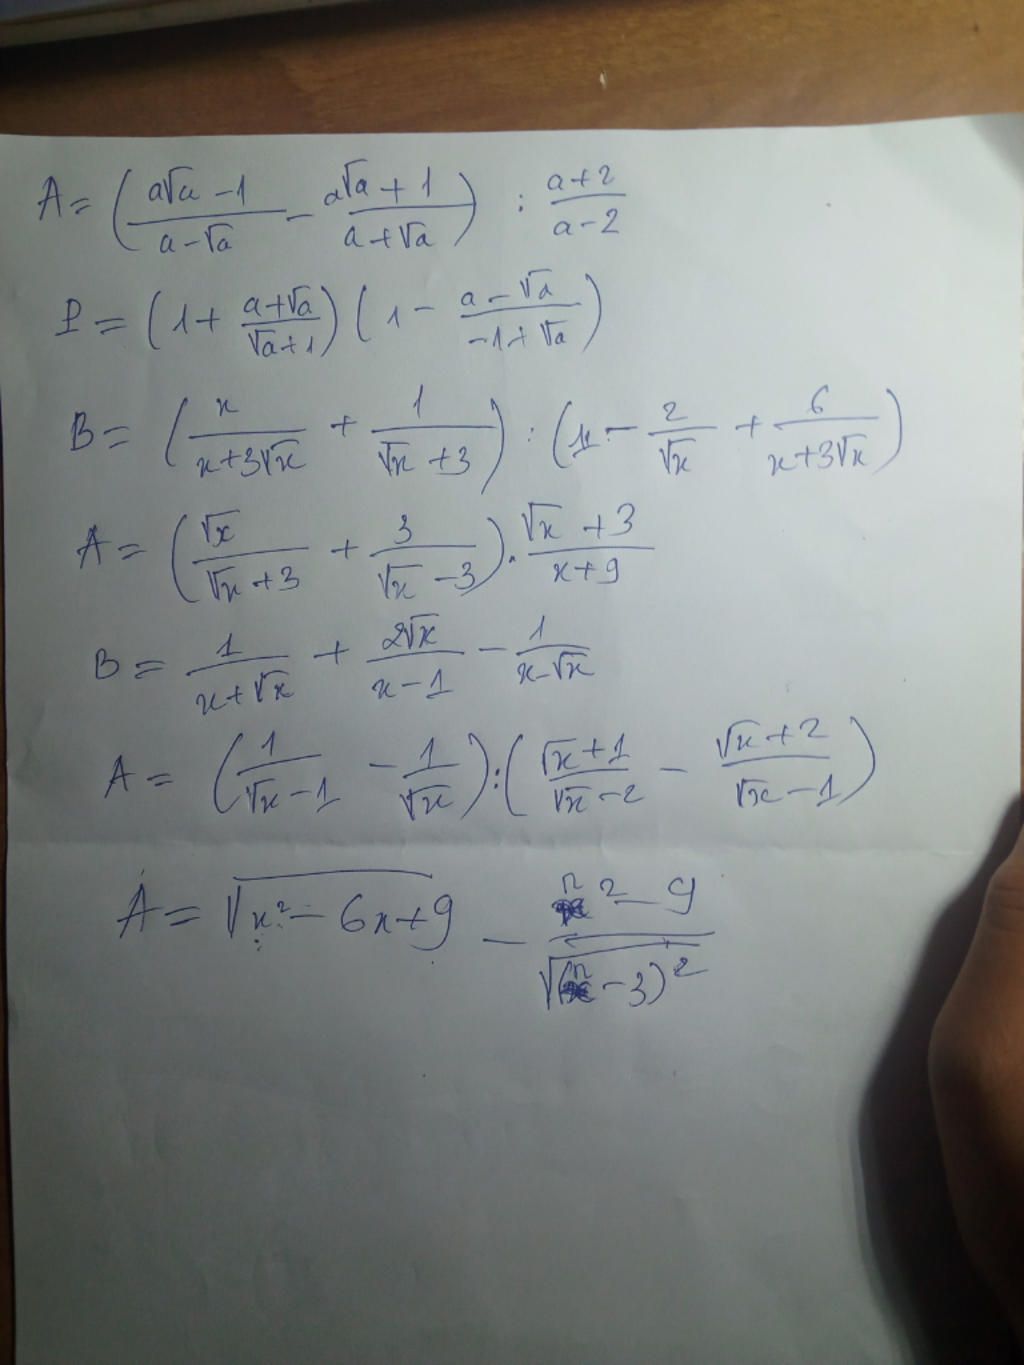 A = (a√a - 1 / a - √a - a√a + 1 / a + √a) : a + 2 / a - 2
P = (1 + a + √a / √a + 1) (1 - a - √a / -1 + √a)
B = (x / x + 3√x + 1 / √x + 3) : (1 - 2 / √x + 6 / x + 3√x)
A = (√x / √x + 3 + 3 / √x - 3) . √x + 3 / x + 9
B = 1 / x + √x + 2√x / x - 1 - 1 / x - √x
A = (1 / √x - 1 - 1 / √x) : (√x + 1 / √x - 2 - √x + 2 / √x - 1)
A = √x² - 6x + 9 - x² - 9 / √(x - 3)²